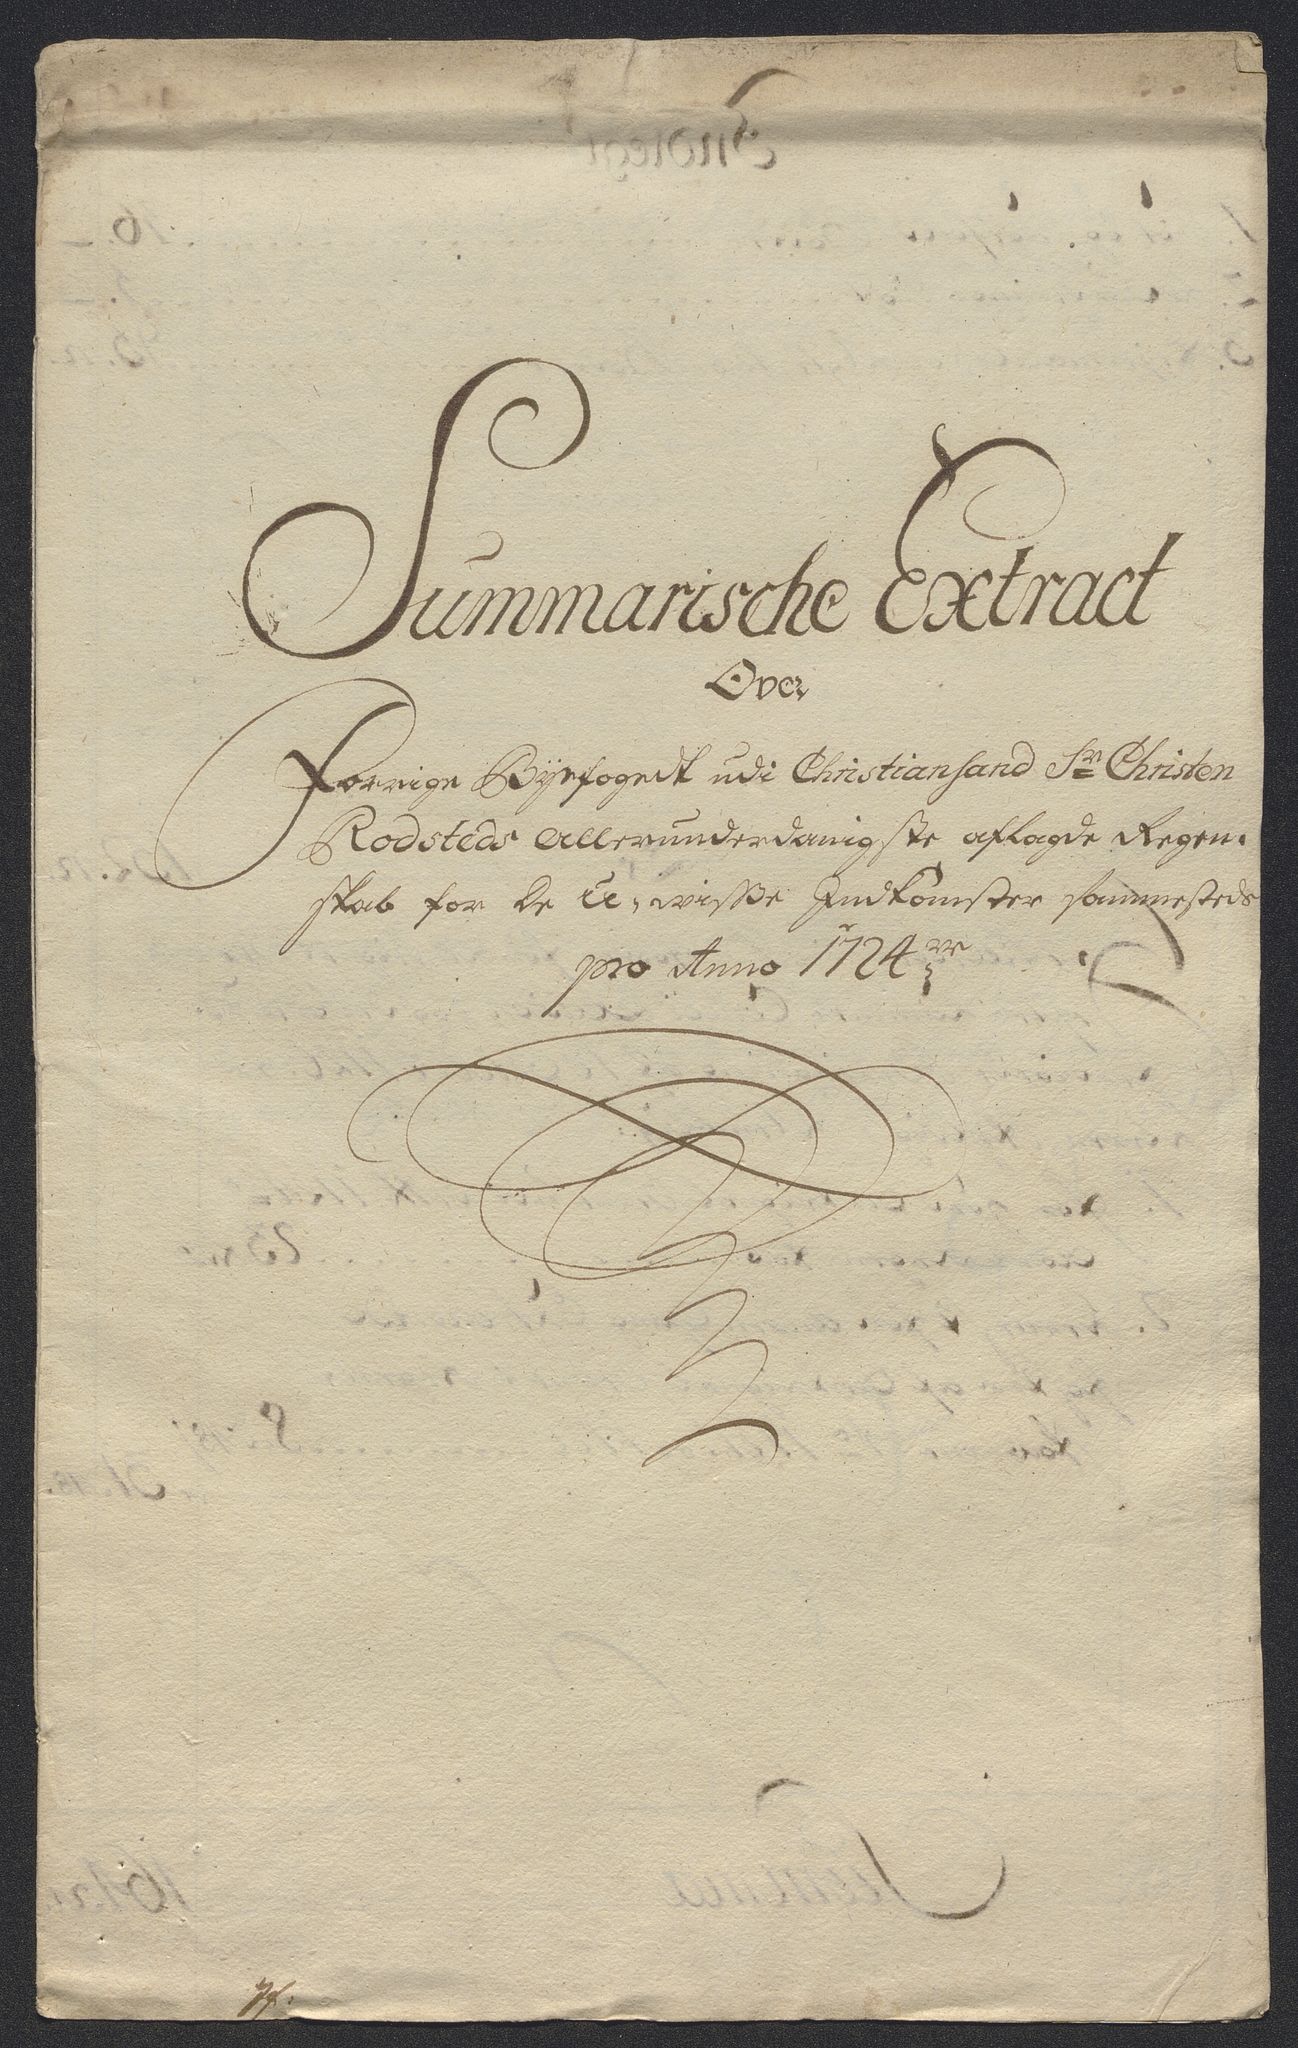 Summarische Extract
Over
Forrige Byefogedt udi Christiansand Sr Christen
Rodsteds Allerunderdanigste aflagde Regen-
skab for de U-wisse Indkomster sammesteds
pro Anno 1724